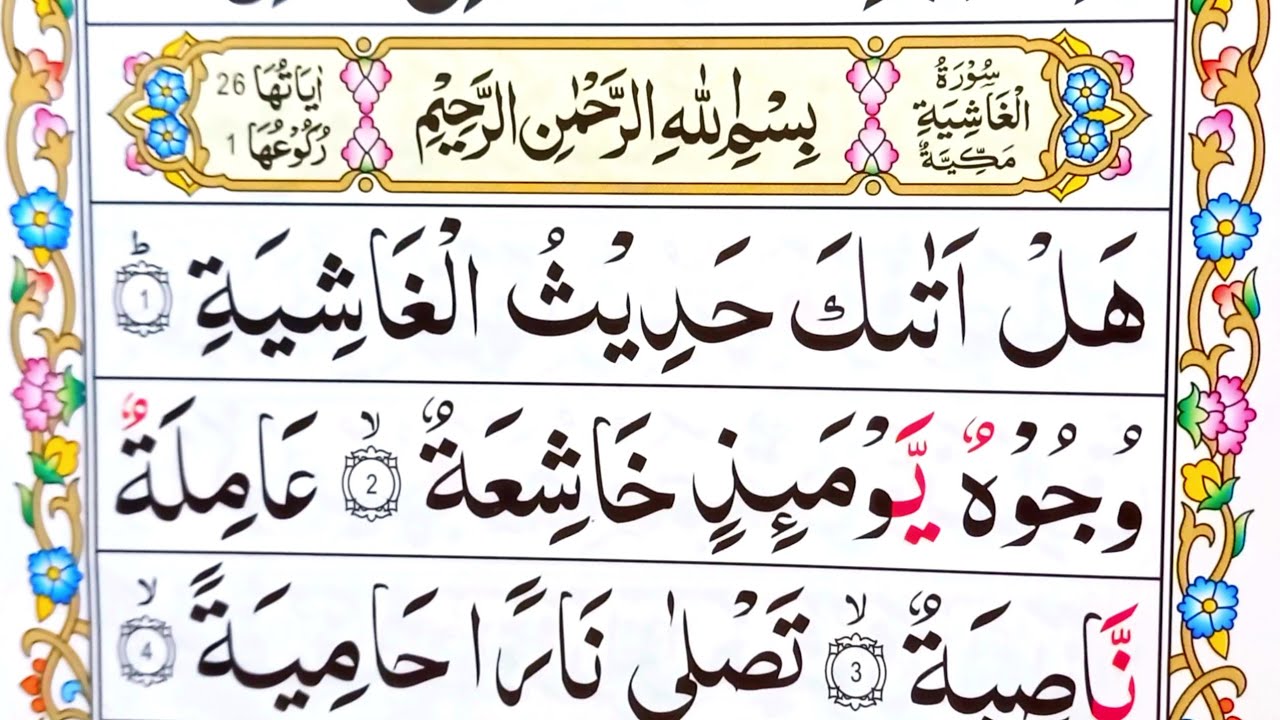 سُوْرَةُ
الْغَاشِيَةِ
مَكِّيَّةٌ
بِسْمِ اللّٰهِ الرَّحْمٰنِ الرَّحِيْمِ
اٰيَاتُهَا 26
رُكُوْعُهَا 1
هَلْ اَتٰىكَ حَدِيْثُ الْغَاشِيَةِ ؕ 1
وُجُوْهٌ يَّوْمَئِذٍ خَاشِعَةٌ ۙ 2 عَامِلَةٌ
نَّاصِبَةٌ ۙ 3 تَصْلٰى نَارًا حَامِيَةً ۙ 4